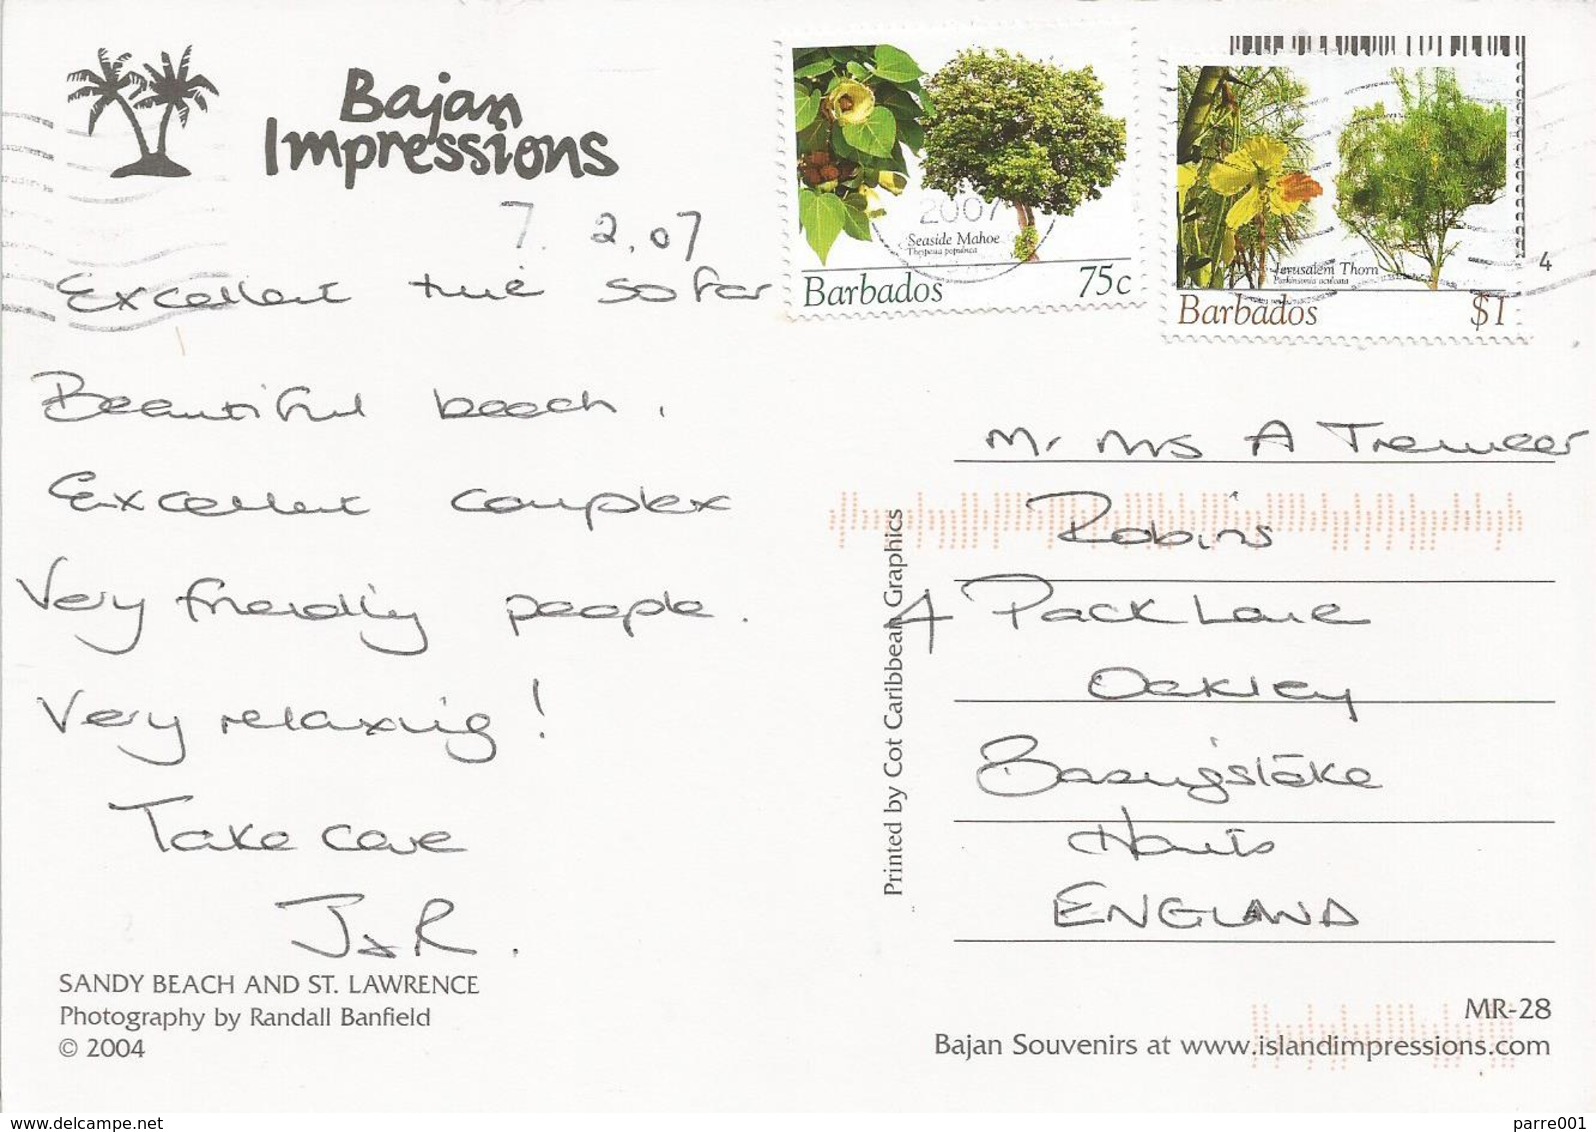 Bajan
Impressions
7.2.07
Excellent time so far
Beautiful beach.
Excellent complex
Very friendly people.
Very relaxing!
Take care
J & R.
SANDY BEACH AND ST. LAWRENCE
Photography by Randall Banfield
© 2004
2007
Seaside Mahoe
Thespesia populnea
Barbados 75c
Jerusalem Thorn
Parkinsonia aculeata
Barbados $1
4
Printed by Cot Caribbean Graphics
Mr Mrs A
Robins
4 Pack Lane
Oakley
Basingstoke
Hants
ENGLAND
MR-28
Bajan Souvenirs at www.islandimpressions.com
www.delcampe.net
parre001